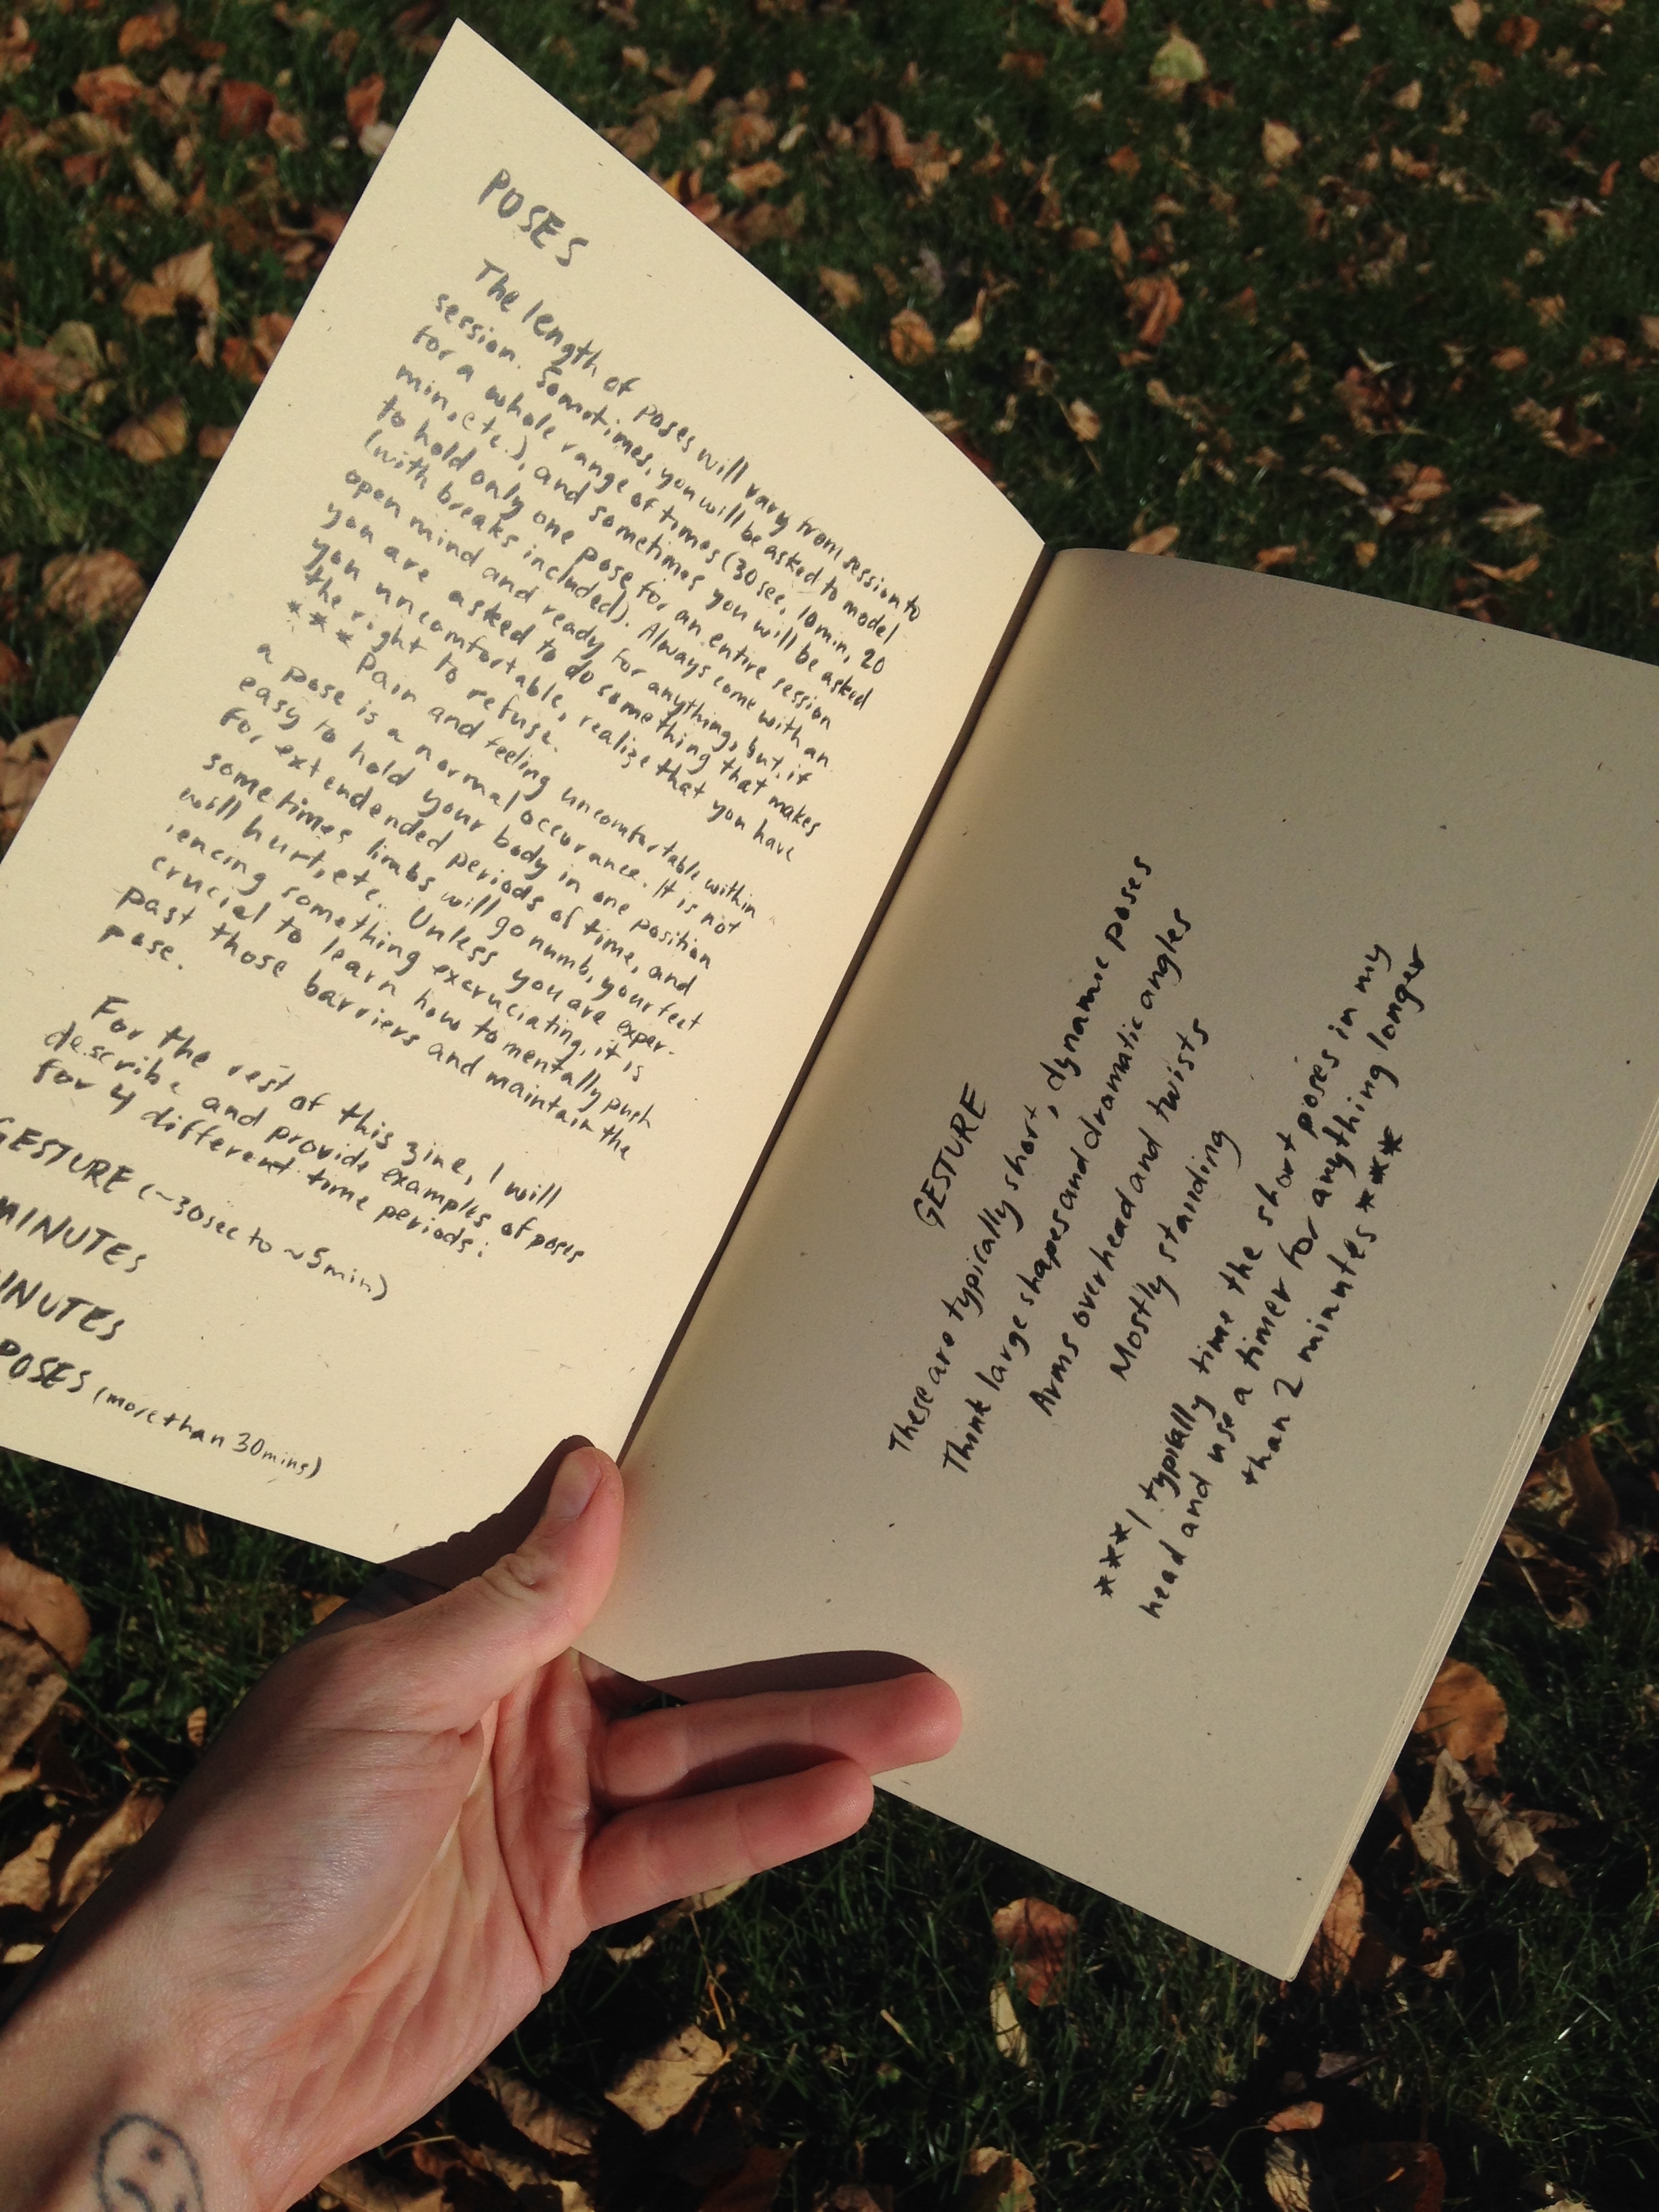 POSES
The length of poses will vary from session to
session. Sometimes, you will be asked to model
for a whole range of times (30sec, 10min, 20
min, etc.), and sometimes you will be asked
to hold only one pose for an entire session
(with breaks included). Always come with an
open mind and ready for anything, but, if
you are asked to do something that makes
you uncomfortable, realize that you have
the right to refuse.
*** Pain and feeling uncomfortable within
a pose is a normal occurance. It is not
easy to hold your body in one position
for extendended periods of time, and
sometimes limbs will go numb, your feet
will hurt, etc. Unless you are exper-
iencing something excruciating, it is
crucial to learn how to mentally push
past those barriers and maintain the
pose.
For the rest of this zine, I will
describe and provide examples of poses
for 4 different time periods:
GESTURE (~30sec to ~5min)
MINUTES
INUTES
POSES (more than 30mins)
GESTURE
These are typically short, dynamic poses
Think large shapes and dramatic angles
Arms overhead and twists
Mostly standing
*** I typically time the short poses in my
head and use a timer for anything longer
than 2 minutes ***